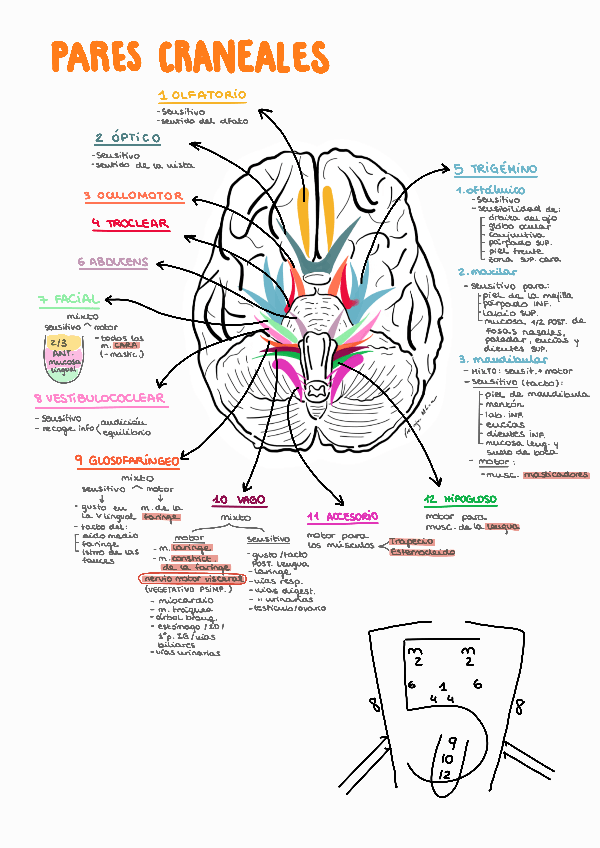 PARES CRANEALES
1 OLFATORIO
- Sensitivo
- sentido del olfato
2 ÓPTICO
- Sensitivo
- sentido de la vista
3 OCULOMOTOR
4 TROCLEAR
6 ABDUCENS
7 FACIAL
mixto
sensitivo motor
2/3
ANT.
mucosa
lingual
- todos los
m. CARA
(-mastic.)
8 VESTIBULOCOCLEAR
- Sensitivo
- recoge info
audición
equilibrio
9 GLOSOFARÍNGEO
mixto
sensitivo motor
gusto en
la V lingual
tacto del:
oido medio
faringe
istmo de las
fauces
m. de la
faringe
10 VAGO
mixto
motor
- m. laringe
- m. constrict.
de la faringe
nervio motor visceral
(VEGETATIVO PSIMP.)
- miocardio
- m. tráquea
- árbol bronq.
- estómago /ID/
1ªp. IG/vías
biliares
- vías urinarias
sensitivo
- gusto/tacto
POST. lengua
- laringe
- vías resp.
- vías digest.
- " urinarias
- testículo/ovario
11 ACCESORIO
motor para
los músculos
Trapecio
Esternocleido
12 HIPOGLOSO
motor para
musc. de la lengua
5 TRIGÉMINO
1. oftálmico
- Sensitivo
- sensibilidad de:
órbita del ojo
globo ocular
conjuntiva
párpado SUP.
piel frente
zona SUP. cara
2. maxilar
- Sensitivo para:
piel de la mejilla
párpado INF.
labio SUP.
mucosa 1/2 POST. de
fosas nasales,
paladar, encías y
dientes SUP.
3. mandibular
- MIXTO: sensit. + motor
- Sensitivo (tacto):
piel de mandíbula
mentón
lab. INF.
encías
dientes INF.
mucosa leng. y
suelo de boca
- motor:
- musc. masticadores
3 3
2 2
6 1 6
4 4
8 8
9
10
12